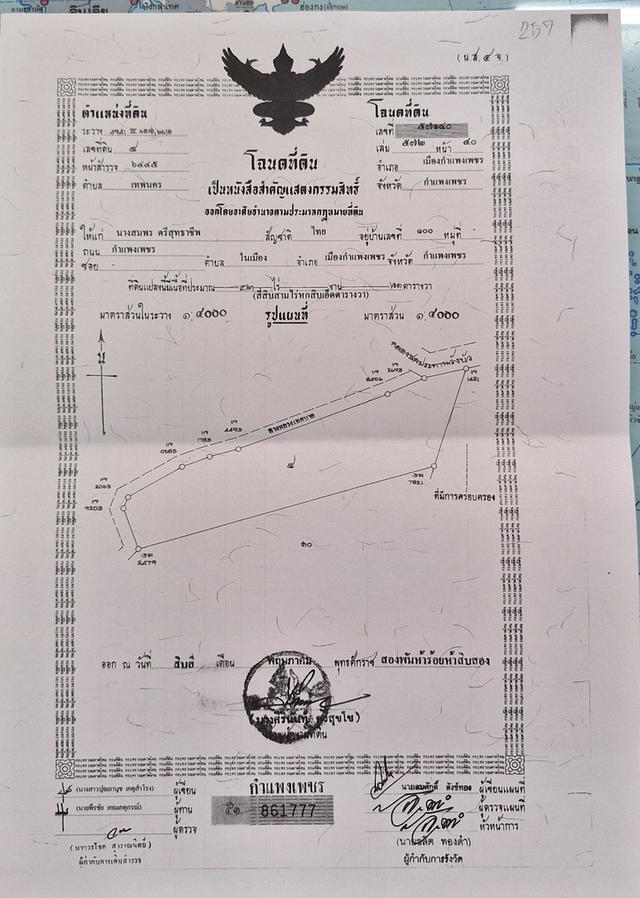 257
(น.ส.๔ จ.)
ตำแหน่งที่ดิน
ระวาง
เลขที่ดิน ๔
หน้าสำรวจ ๖๔๔๕
ตำบล เทพนคร
โฉนดที่ดิน
เลขที่ ๕๗๑๔๐
เล่ม ๕๗๒ หน้า ๔๐
อำเภอ เมืองกำแพงเพชร
จังหวัด กำแพงเพชร
โฉนดที่ดิน
เป็นหนังสือสำคัญแสดงกรรมสิทธิ์
ออกโดยอาศัยอำนาจตามประมวลกฎหมายที่ดิน
ให้แก่ นางสมพร ศรีสุทธาชีพ สัญชาติ ไทย อยู่บ้านเลขที่ ๑๐๐ หมู่ที่ -
ถนน กำแพงเพชร ตำบล ในเมือง อำเภอ เมืองกำแพงเพชร จังหวัด กำแพงเพชร
ซอย -
ที่ดินแปลงนี้มีเนื้อที่ประมาณ ๔๓ ไร่ - งาน ๖๑ ตารางวา
(สี่สิบสามไร่หกสิบเอ็ดตารางวา)
มาตราส่วนในระวาง ๑:๔๐๐๐ รูปแผนที่ มาตราส่วน ๑:๔๐๐๐
น
คลองชลประทานวังบัว
ทางหลวงเทศบาล
1421
2693
8406
4493
1783
0685
2065
9203
2479
7821
๔
๓๐
ที่มีการครอบครอง
ออก ณ วันที่ สิบสี่ เดือน พฤษภาคม พุทธศักราช สองพันห้าร้อยห้าสิบสอง
เจ้าพนักงานที่ดิน
กำแพงเพชร
861777
ผู้เขียน
ผู้ทาน
ผู้ตรวจ
ผู้กำกับการเดินสำรวจ
นายสมศักดิ์ สังข์ทอง ผู้เขียนแผนที่
ผู้ตรวจแผนที่
หัวหน้าการ
ผู้กำกับการรังวัด